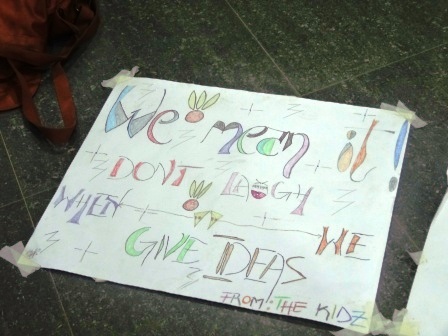 We mean it!
DONT LAUGH
WHEN WE
GIVE IDEAS
FROM: THE KIDZ